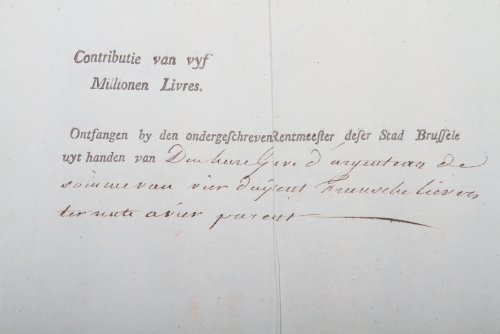 Contributie van vyf
Millionen Livres.
Ontfangen by den ondergeschreven Rentmeester deser Stad Brussele
uyt handen van Den heere Greve d'argenteau de
somme van vier duysent Fransche livers
ter rate a vier par cent